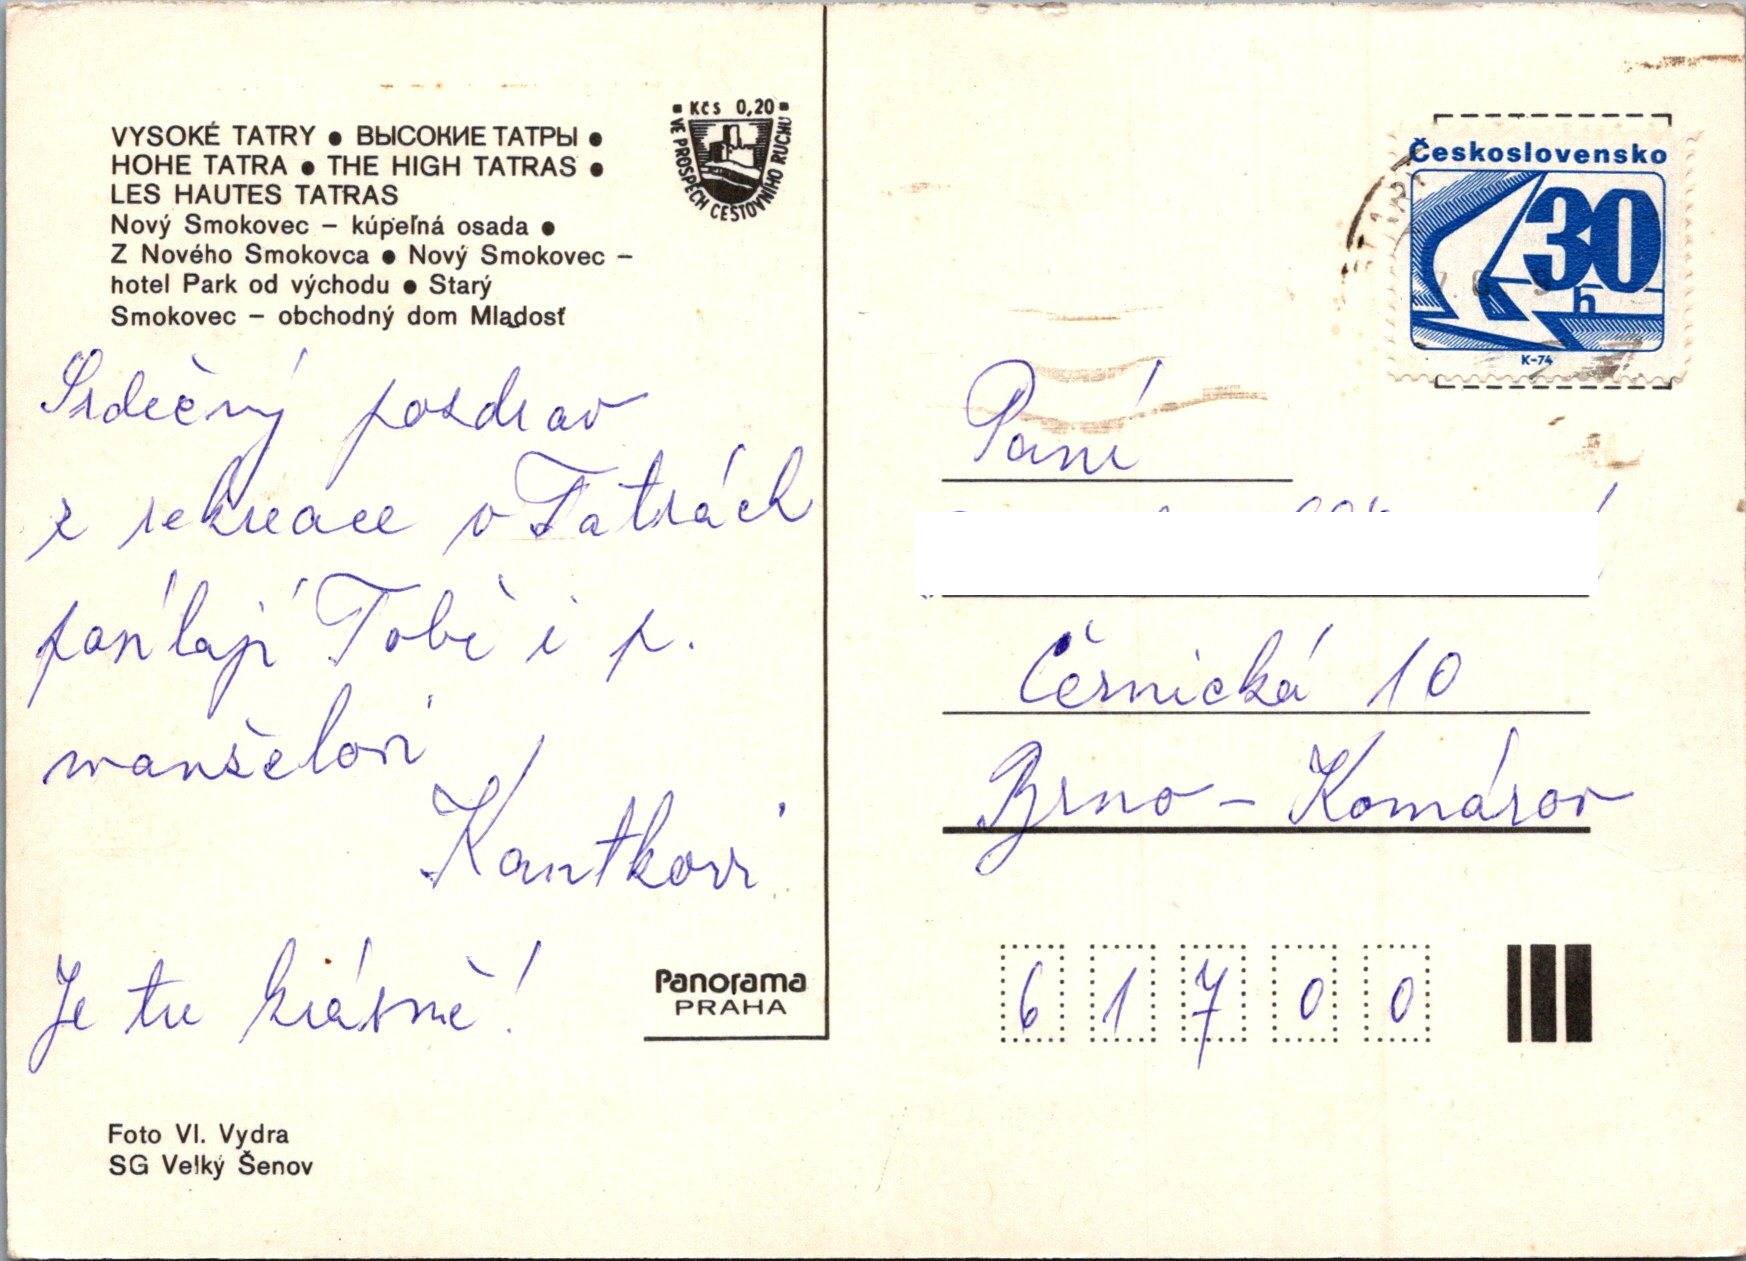 VYSOKÉ TATRY ● ВЫСОКИЕ ТАТРЫ ●
HOHE TATRA ● THE HIGH TATRAS ●
LES HAUTES TATRAS
Nový Smokovec – kúpeľná osada ●
Z Nového Smokovca ● Nový Smokovec –
hotel Park od východu ● Starý
Smokovec – obchodný dom Mladosť
Kčs 0,20
VE PROSPĚCH CESTOVNÍHO RUCHU
Srdečný pozdrav
z rekreace v Tatrách
posílají Tobě i p.
manželovi
Kantkovi
Je tu krásně!
Panorama
PRAHA
Foto Vl. Vydra
SG Velký Šenov
Československo
30
h
K-74
Paní
Černická 10
Brno – Komárov
61700